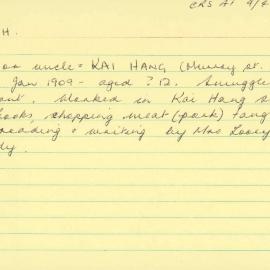 CRS A1 9/4
H.
or uncle = KAI HANG (Murray St.
Jan 1909 - aged ? 12. Smuggle
out, worked in Kai Hang s
ooks, chopping meat (pork) tang
reading & writing by Mrs Looey
dy.